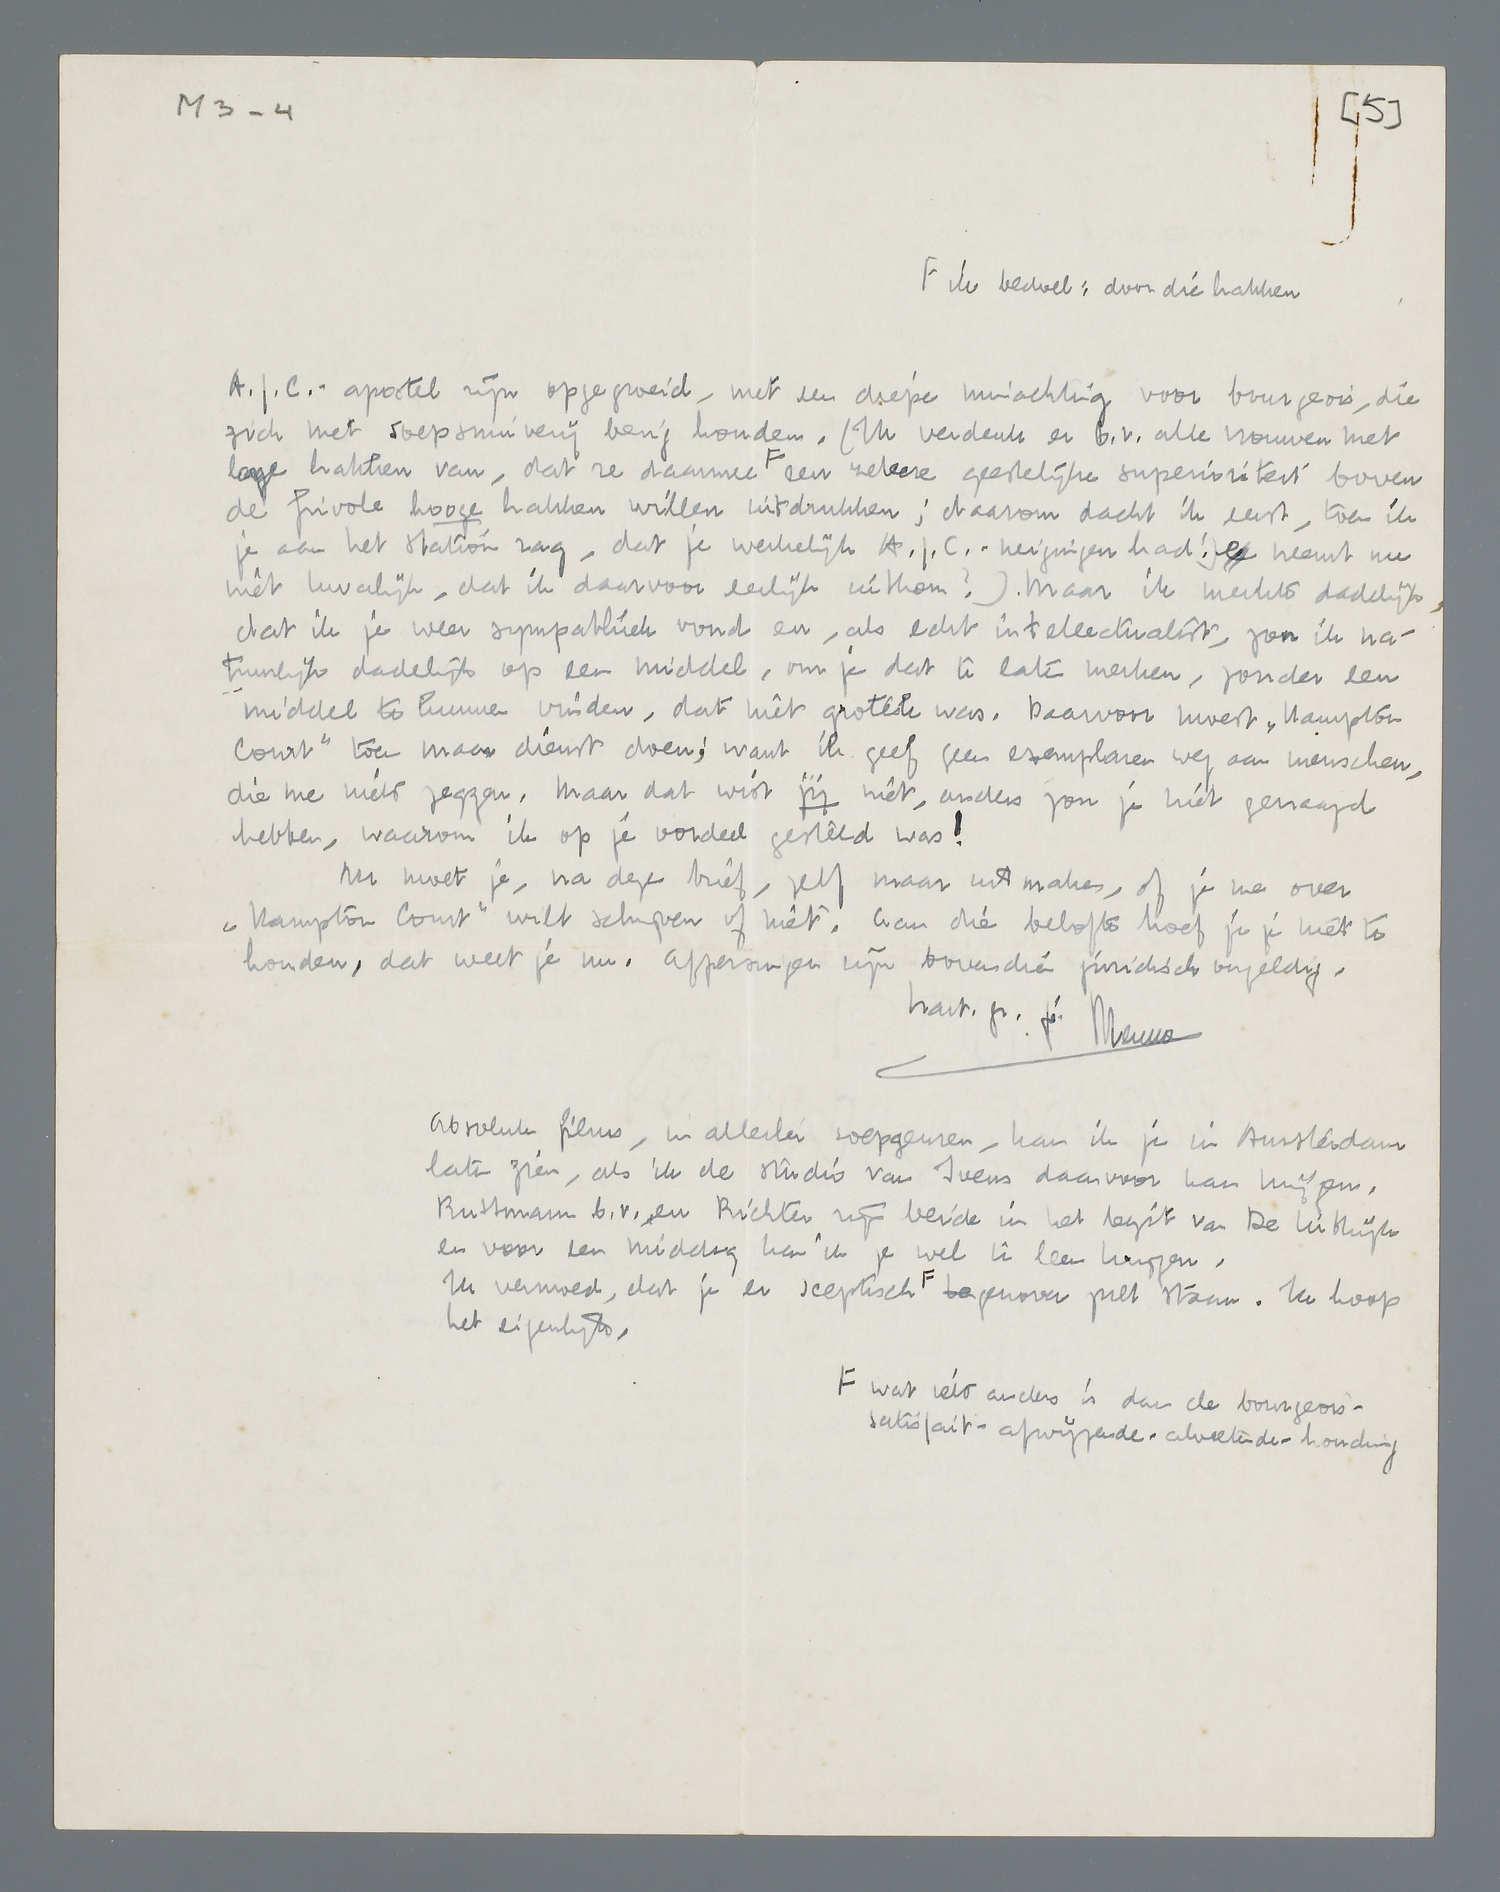 M 3 - 4
[5]
F ik bedoel: door die hakken
A.J.C.-apostel zijn opgegroeid, met een diepe minachting voor bourgeois, die
zich met soepsnuiverij bezig houden. (Ik verdenk er b.v. alle vrouwen met
lage hakken van, dat ze daarmee F een zekere geestelijke superioriteit boven
de frivole hooge hakken willen uitdrukken; daarom dacht ik eerst, toen ik
je aan het station zag, dat je werkelijk A.J.C.-neigingen had! Je neemt me
niet kwalijk, dat ik daarvoor eerlijk uitkom?). Maar ik merkte dadelijk,
dat ik je weer sympathiek vond en, als echt intellectualist, zon ik na-
tuurlijk dadelijk op een middel, om je dat te laten merken, zonder een
middel te kunnen vinden, dat niet grotesk was. Daarvoor moest „Hampton
Court" toen maar dienst doen; want ik geef geen exemplaren weg aan menschen,
die me niets zeggen. Maar dat wist jij niet, anders zou je niet gevraagd
hebben, waarom ik op je oordeel gesteld was!
Nu moet je, na deze brief, zelf maar uitmaken, of je me over
„Hampton Court" wilt schrijven of niet. Aan die belofte hoef je je niet te
houden, dat weet je nu. Afpersingen zijn bovendien juridisch ongeldig.
hart. gr. je Menno
Absolute films, in allerlei soepgenren, kan ik je in Amsterdam
laten zien, als ik de studio van Ivens daarvoor kan krijgen.
Ruttmann b.v., en Richter zijn beide in het bezit van De Uitkijk
en voor een middag kan ik ze wel te leen krijgen.
Ik vermoed, dat je er sceptisch F tegenover zult staan. Ik hoop
het eigenlijk.
F wat iets anders is dan de bourgeois-
satisfait-afwijzende-alwetende-houding